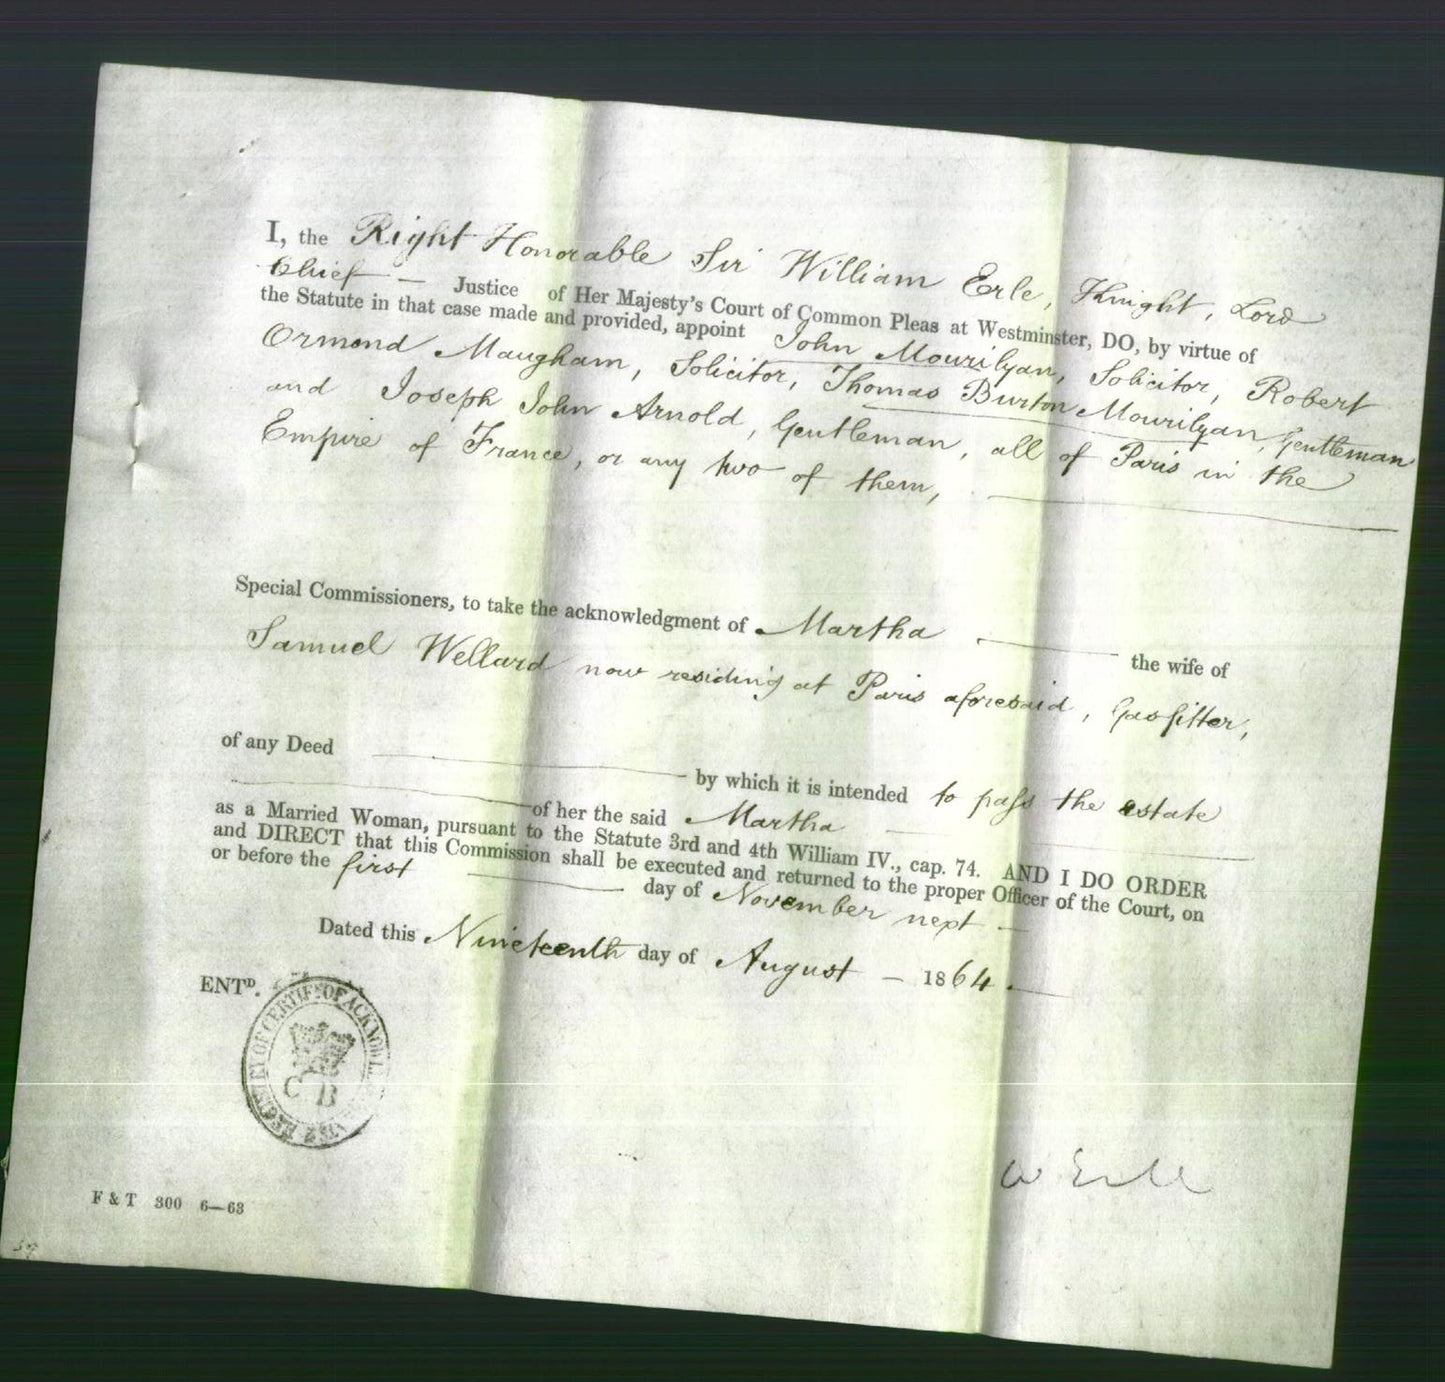 I, the Right Honorable Sir William Erle, Knight, Lord
Chief — Justice of Her Majesty's Court of Common Pleas at Westminster, DO, by virtue of
the Statute in that case made and provided, appoint John Mourilyan, Solicitor, Robert
Ormond Maugham, Solicitor, Thomas Burton Mourilyan, Gentleman
and Joseph John Arnold, Gentleman, all of Paris in the
Empire of France, or any two of them,
Special Commissioners, to take the acknowledgment of Martha — the wife of
Samuel Wellard now residing at Paris aforesaid, Gasfitter,
of any Deed — by which it is intended to pass the estate
— of her the said Martha —
as a Married Woman, pursuant to the Statute 3rd and 4th William IV., cap. 74. AND I DO ORDER
and DIRECT that this Commission shall be executed and returned to the proper Officer of the Court, on
or before the first — day of November next —
Dated this Nineteenth day of August — 1864.
ENTD.
REGISTRY OF CERTIFS OF ACKNOWL
C B
W Erle
F & T 300 6—63